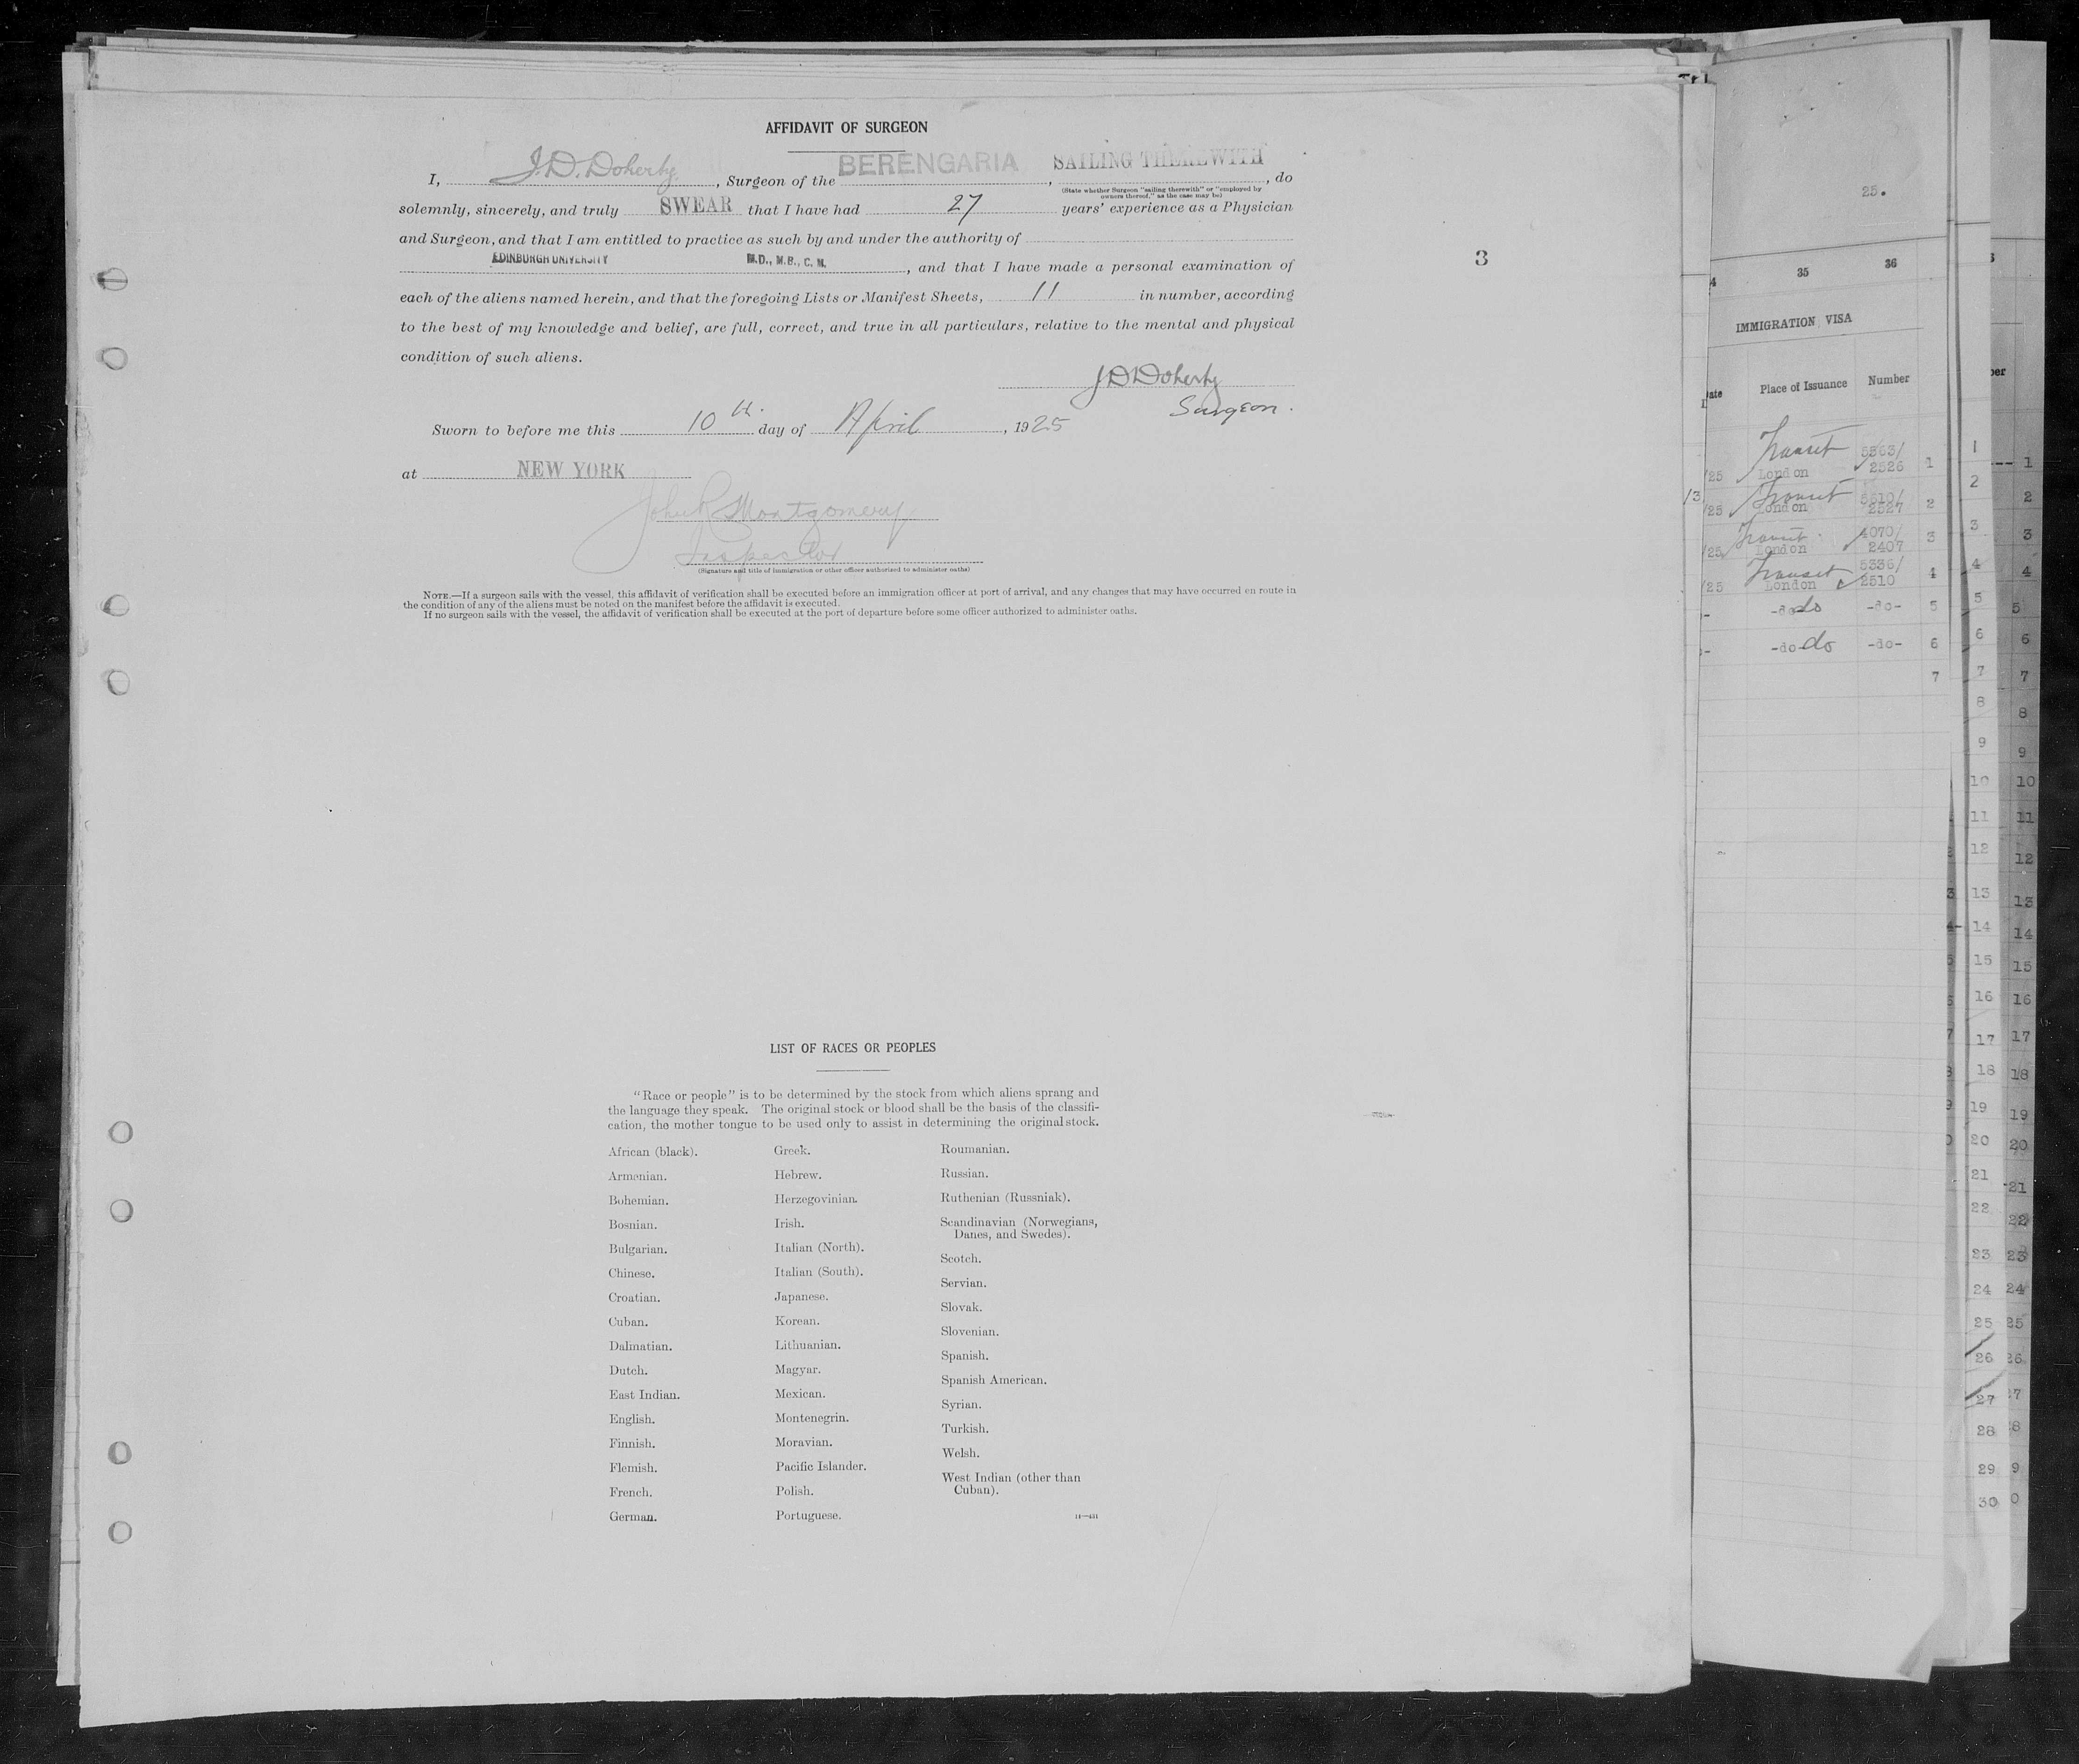 AFFIDAVIT OF SURGEON
I, J. D. Doherty, Surgeon of the BERENGARIA, SAILING THEREWITH, do
(State whether Surgeon "sailing therewith" or "employed by
owners thereof," as the case may be)
solemnly, sincerely, and truly SWEAR that I have had 27 years' experience as a Physician
and Surgeon, and that I am entitled to practice as such by and under the authority of
EDINBURGH UNIVERSITY M.D., M.B., C.M., and that I have made a personal examination of
each of the aliens named herein, and that the foregoing Lists or Manifest Sheets, 11 in number, according
to the best of my knowledge and belief, are full, correct, and true in all particulars, relative to the mental and physical
condition of such aliens.
J D Doherty
Surgeon.
Sworn to before me this 10th. day of April, 1925
at NEW YORK
John R Montgomery
Inspector
(Signature and title of immigration or other officer authorized to administer oaths)
NOTE.—If a surgeon sails with the vessel, this affidavit of verification shall be executed before an immigration officer at port of arrival, and any changes that may have occurred en route in
the condition of any of the aliens must be noted on the manifest before the affidavit is executed.
If no surgeon sails with the vessel, the affidavit of verification shall be executed at the port of departure before some officer authorized to administer oaths.
3
LIST OF RACES OR PEOPLES
"Race or people" is to be determined by the stock from which aliens sprang and
the language they speak. The original stock or blood shall be the basis of the classifi-
cation, the mother tongue to be used only to assist in determining the original stock.
African (black).
Armenian.
Bohemian.
Bosnian.
Bulgarian.
Chinese.
Croatian.
Cuban.
Dalmatian.
Dutch.
East Indian.
English.
Finnish.
Flemish.
French.
German.
Greek.
Hebrew.
Herzegovinian.
Irish.
Italian (North).
Italian (South).
Japanese.
Korean.
Lithuanian.
Magyar.
Mexican.
Montenegrin.
Moravian.
Pacific Islander.
Polish.
Portuguese.
Roumanian.
Russian.
Ruthenian (Russniak).
Scandinavian (Norwegians,
Danes, and Swedes).
Scotch.
Servian.
Slovak.
Slovenian.
Spanish.
Spanish American.
Syrian.
Turkish.
Welsh.
West Indian (other than
Cuban).
25.
35 36
IMMIGRATION VISA
Place of Issuance Number
Transit 5363/
/25 London 2526 1
Transit 5510/
/25 London 2527 2
Transit 4070/
/25 London 2407 3
Transit 5336/
/25 London 2510 4
-do- do -do- 5
-do- do -do- 6
7
1
2
3
4
5
6
7
8
9
10
11
12
13
14
15
16
17
18
19
20
21
22
23
24
25
26
27
28
29
30
1
2
3
4
5
6
7
8
9
10
11
12
13
14
15
16
17
18
19
20
21
22
23
24
25
26